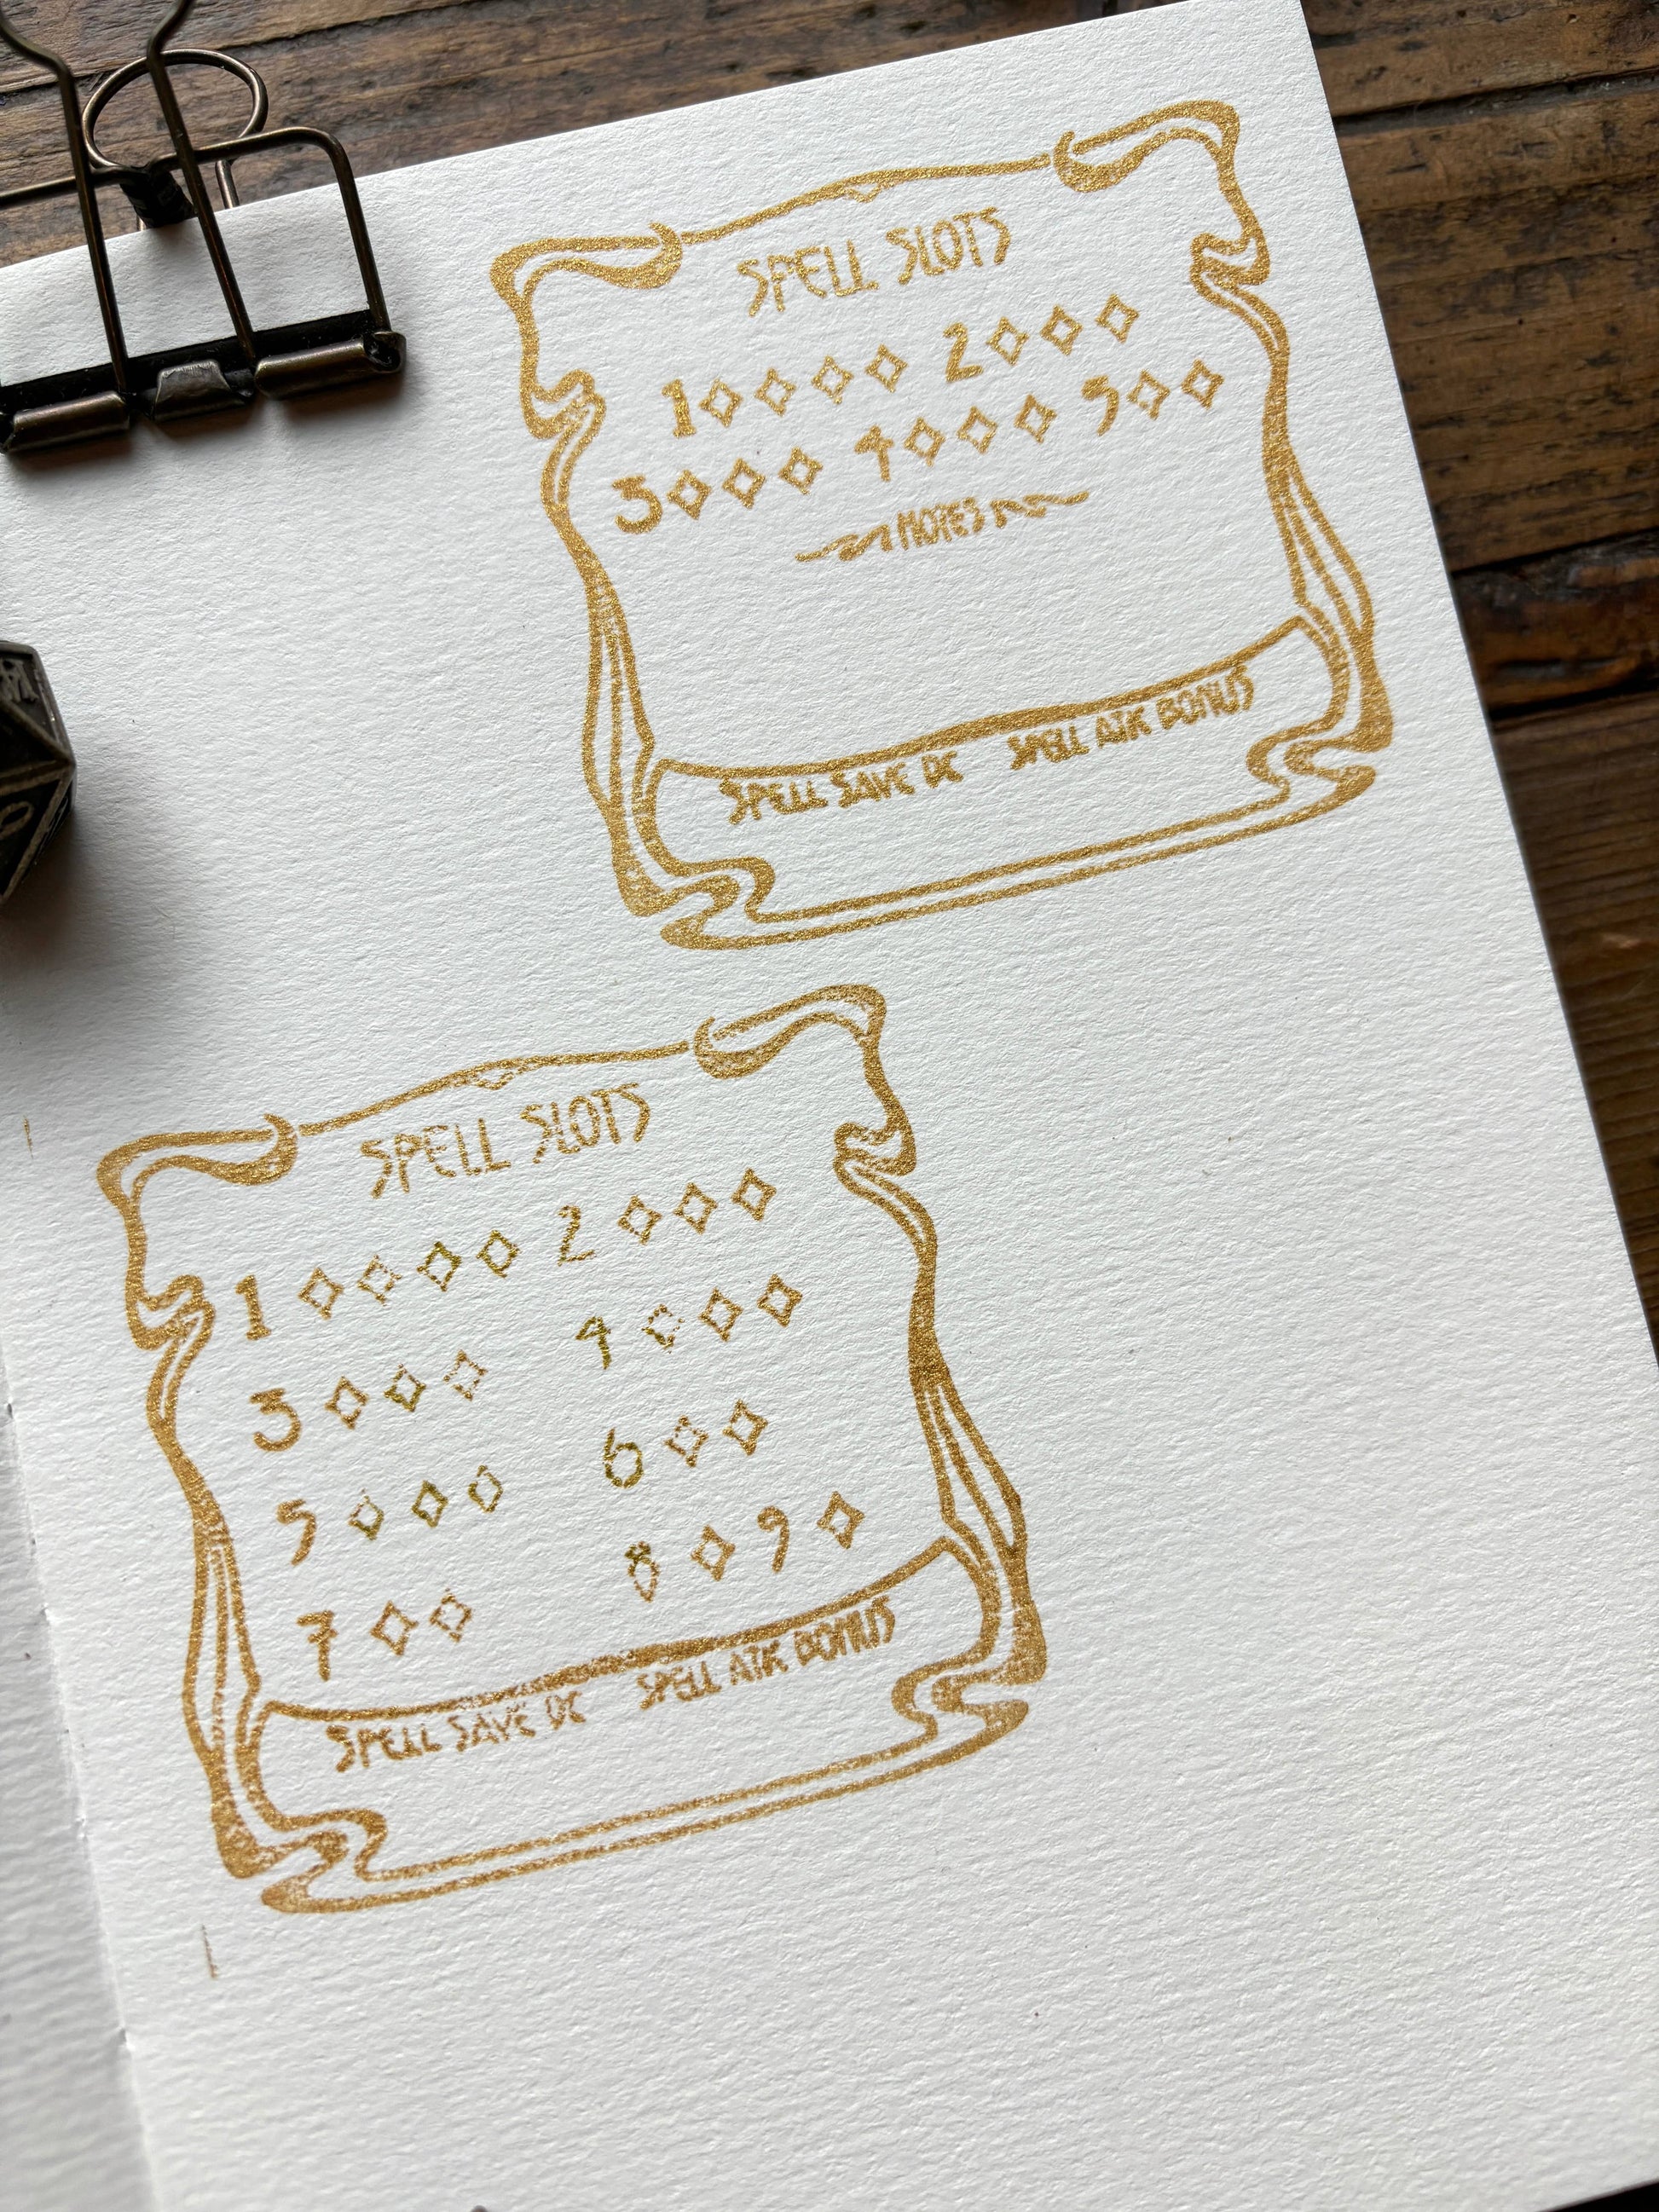 SPELL SLOTS
1 2
3 4 5
NOTES
SPELL SAVE DC SPELL ATK BONUS
SPELL SLOTS
1 2
3 4
5 6
7 8 9
SPELL SAVE DC SPELL ATK BONUS